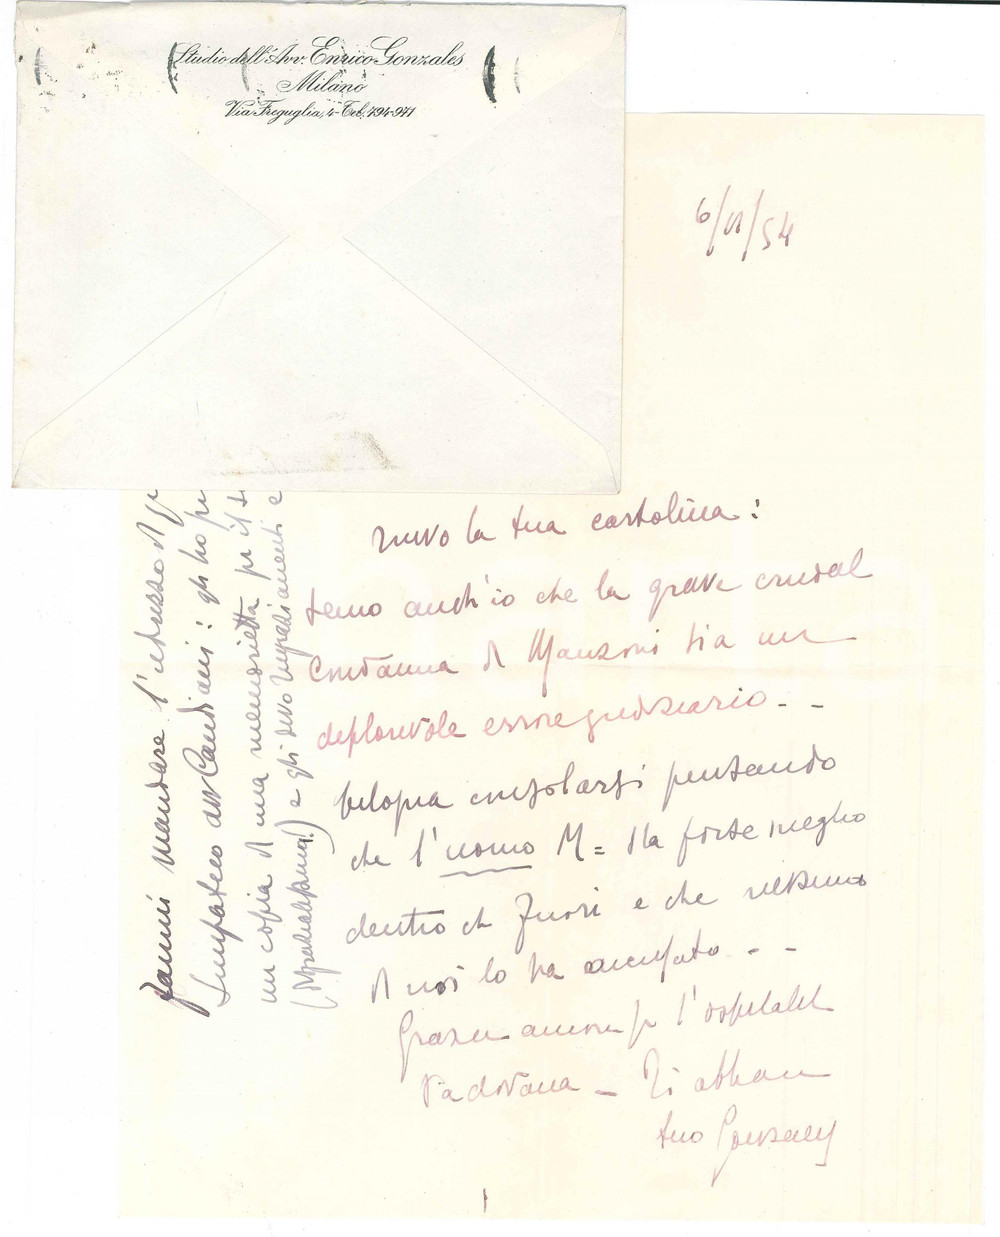 Studio dell'Avv. Enrico Gonzales
Milano
Via Freguglia, 4 - Tel. 794-971
6/VI/54
la tua cartolina:
temo anch'io che la grave crudel
condanna di Manzoni sia un
deplorevole errore giudiziario - -
bisogna consolarsi pensando
che l'uomo M = sta forse meglio
dentro che fuori e che nessuno
di noi lo ha accusato - -
Grazie ancora p l'ospitalità
Padovana - Ti abbracci
tuo Gonzales
Fammi mandare l'
Simpatico avv Candiani: gli ho
un copia di una memorietta per il
e gli devo ringraziamenti e